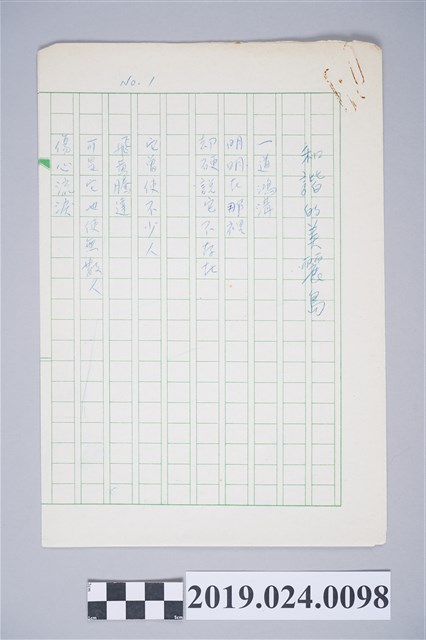 No. 1
和諧的美麗島
一道鴻溝
明明在那裡
却硬說它不存在
它曾使不少人
飛黃騰達
可是它也使無數人
傷心流淚
2019.024.0098